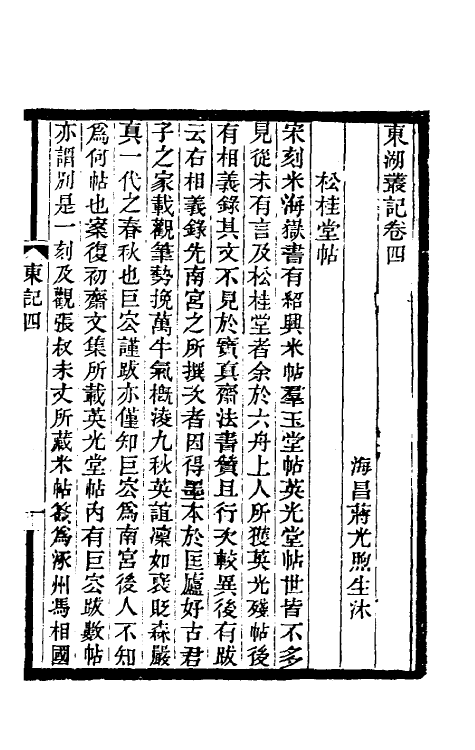 東湖叢記卷四
海昌蔣光煦生沐
松桂堂帖
宋刻米海嶽書有紹興米帖羣玉堂帖英光堂帖世皆不多
見從未有言及松桂堂者余於六舟上人所獲英光殘帖後
有相義錄其文不見於寶真齋法書贊且行次較異後有跋
云右相義錄先南宮之所撰次者因得墨本於匡廬好古君
子之家載觀筆勢挽萬牛氣概淩九秋英誼凜如袞貶森嚴
真一代之春秋也巨容謹跋亦僅知巨容爲南宮後人不知
爲何帖也案復初齋文集所載英光堂帖內有巨容跋數帖
亦謂別是一刻及觀張叔未丈所藏米帖簽爲涿州馮相國
東記四
一